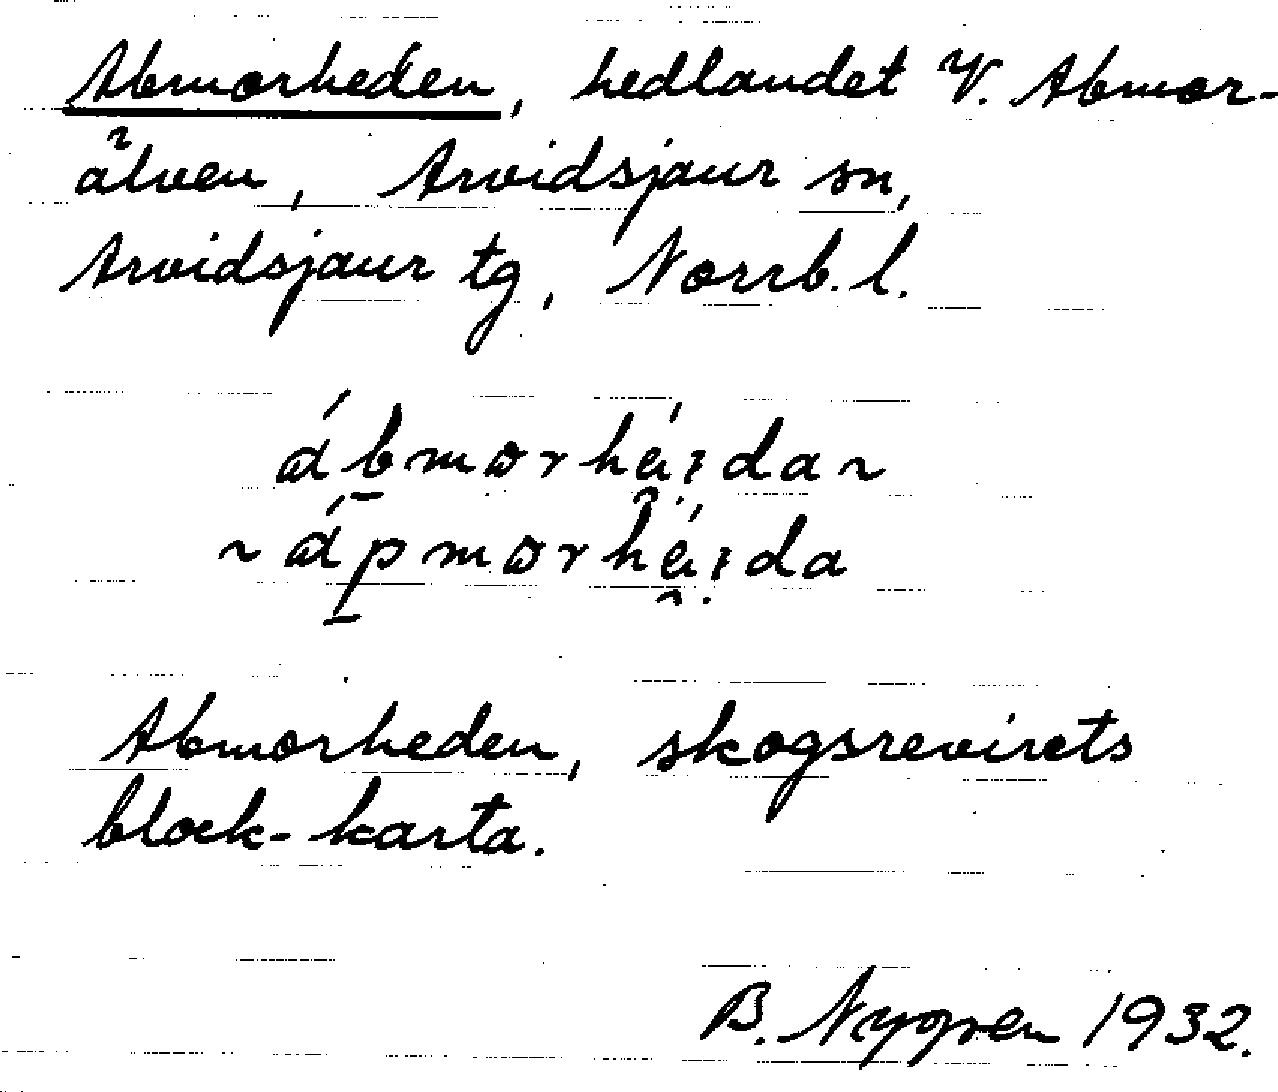 Abmorheden, hedlandet V. Abmor-
älven, Arvidsjaur sn,
Arvidsjaur tg, Norrb. l.
ábmorhéi̯da ~
~ ápmorhéi̯da
Abmorheden, skogsrevirets
block-karta.
B. Nygren 1932.